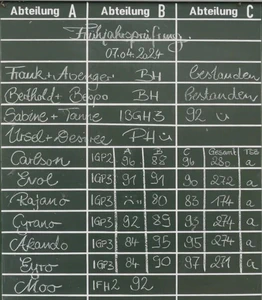 Abteilung A Abteilung B Abteilung C
Frühjahrsprüfung
07.04.2024
Frank + Avenger BH bestanden
Berthold + Beppo BH Bestanden
Sabine + IBGH3 92
Ursel + Desiree PH
A B C Gesamt TSB
Carlson IGP2 96 88 96 280 a
Erol IGP3 91 91 90 272 a
Rajano IGP3 80 83 174 a
Cyrano IGP3 92 89 93 274 a
Akando IGP3 84 95 95 274 a
Gyro IGP3 84 90 97 271 a
Moo IFH2 92